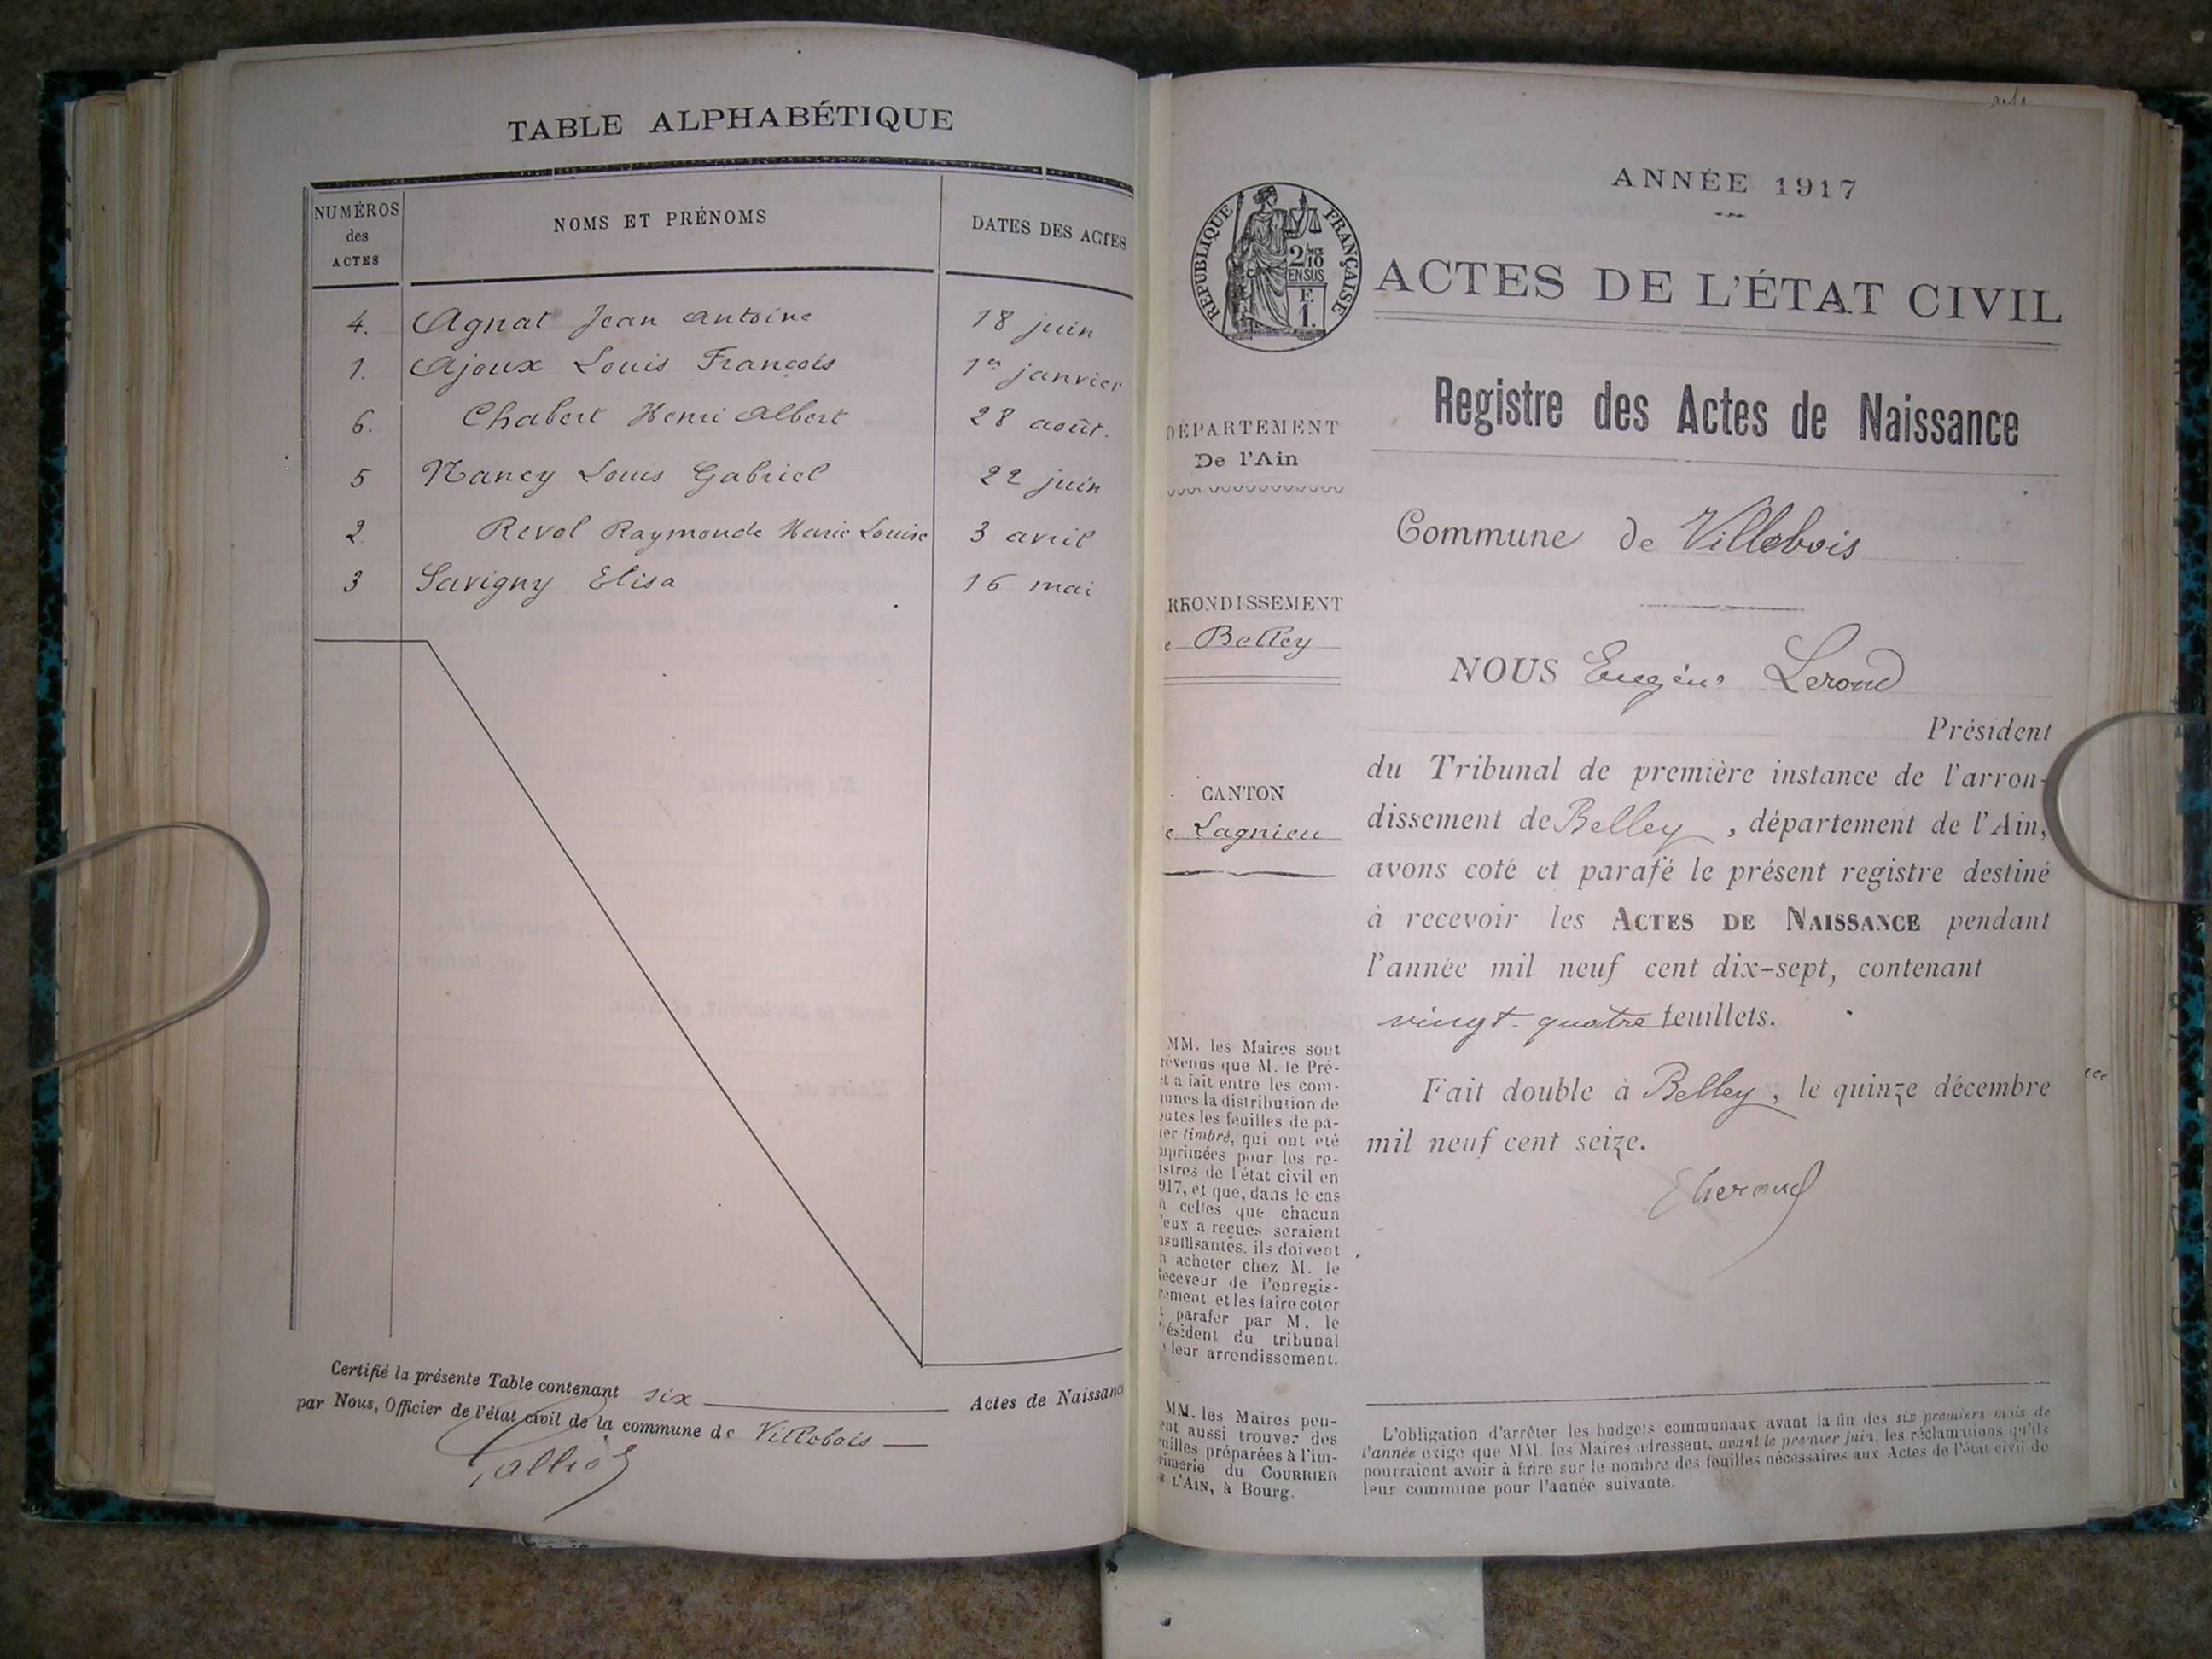 TABLE ALPHABÉTIQUE
NUMÉROS des ACTES
NOMS ET PRÉNOMS
DATES DES ACTES
4. Agnat Jean Antoine 18 juin
1. Ajoux Louis François 1er janvier
6. Chabert Henri Albert 28 août.
5 Nancy Louis Gabriel 22 juin
2. Revol Raymonde Marie Louise 3 avril
3 Savigny Elisa 16 mai
Certifié la présente Table contenant six Actes de Naissanc
par Nous, Officier de l'état civil de la commune de Villebois
ANNÉE 1917
RÉPUBLIQUE FRANÇAISE
2/10
EN SUS
F.
1.
ACTES DE L'ÉTAT CIVIL
Registre des Actes de Naissance
DÉPARTEMENT
De l'Ain
Commune de Villebois
RRONDISSEMENT
e Belley
NOUS Eugène Lerond
Président
du Tribunal de première instance de l'arron-
dissement de Belley, département de l'Ain,
avons coté et parafé le présent registre destiné
à recevoir les ACTES DE NAISSANCE pendant
l'année mil neuf cent dix-sept, contenant
vingt-quatre feuillets.
Fait double à Belley, le quinze décembre
mil neuf cent seize.
CANTON
e Lagnieu
MM. les Maires sont
révenus que M. le Pré-
et a fait entre les com-
munes la distribution de
outes les feuilles de pa-
ier timbré, qui ont été
mprimées pour les re-
istres de l'état civil en
917, et que, dans le cas
ù celles que chacun
'eux a reçues seraient
nsuffisantes, ils doivent
n acheter chez M. le
Receveur de l'enregis-
rement et les faire coter
t parafer par M. le
résident du tribunal
leur arrondissement.
MM. les Maires peu-
ent aussi trouver des
euilles préparées à l'im-
rimerie du COURRIER
E L'AIN, à Bourg.
L'obligation d'arrêter les budgets communaux avant la fin des six premiers mois de
l'année exige que MM. les Maires adressent, avant le premier juin, les réclamations qu'ils
pourraient avoir à faire sur le nombre des feuilles nécessaires aux Actes de l'état civil de
leur commune pour l'année suivante.